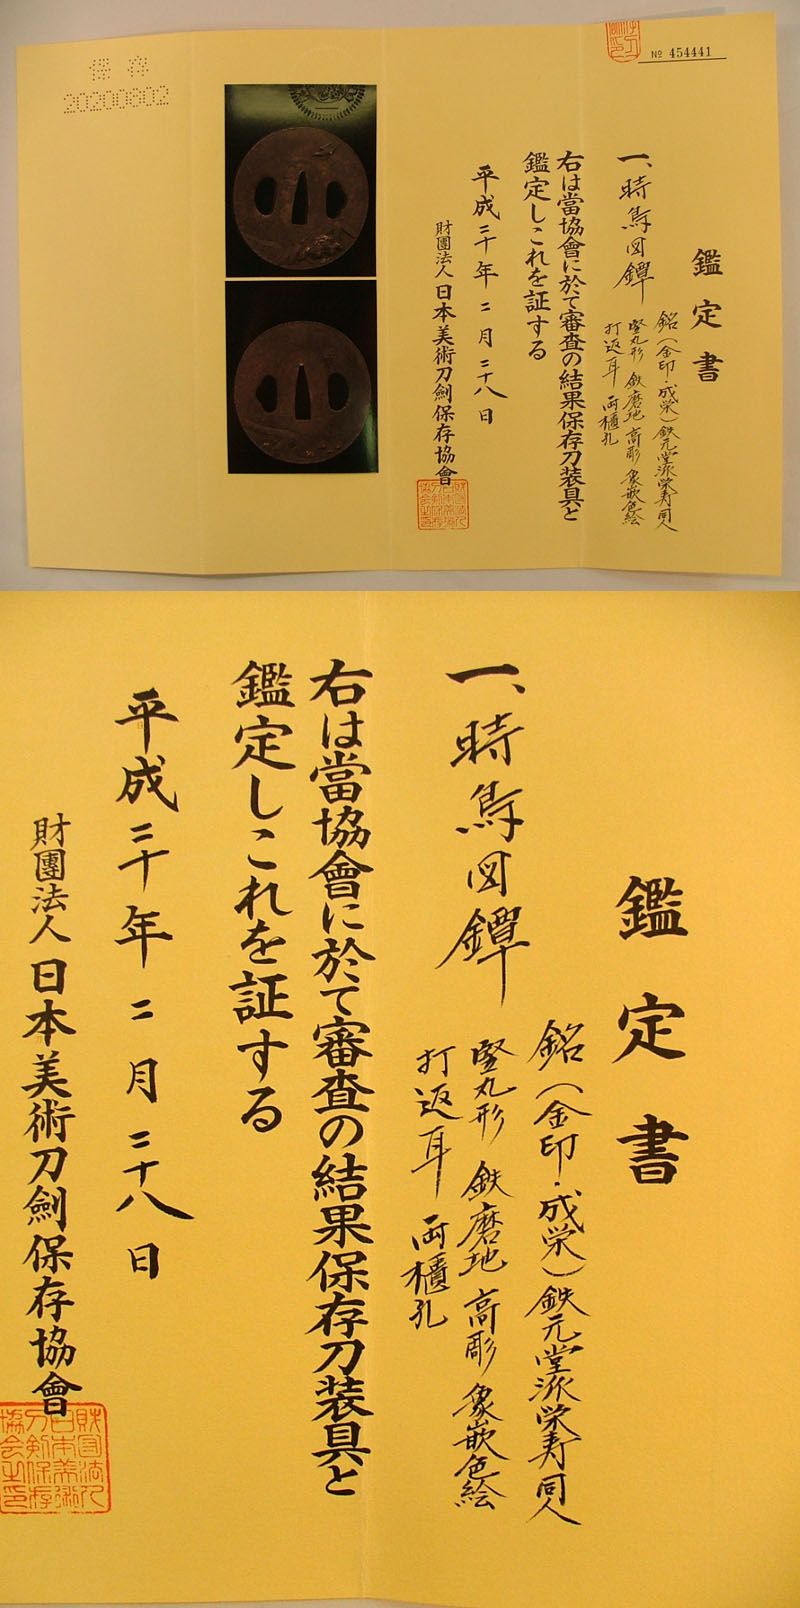 保存
20200802
№ 454441
鑑定書
一、時鳥図鐔
銘(金印・成栄)鉄元堂派栄寿同人
竪丸形 鉄磨地 高彫 象嵌色絵
打返耳 両櫃孔
右は當協會に於て審査の結果保存刀装具と
鑑定しこれを証する
平成二十年二月二十八日
財團法人日本美術刀劍保存協會
鑑定書
一、時鳥図鐔
銘(金印・成栄)鉄元堂派栄寿同人
竪丸形 鉄磨地 高彫 象嵌色絵
打返耳 両櫃孔
右は當協會に於て審査の結果保存刀装具と
鑑定しこれを証する
平成二十年二月二十八日
財團法人日本美術刀劍保存協會